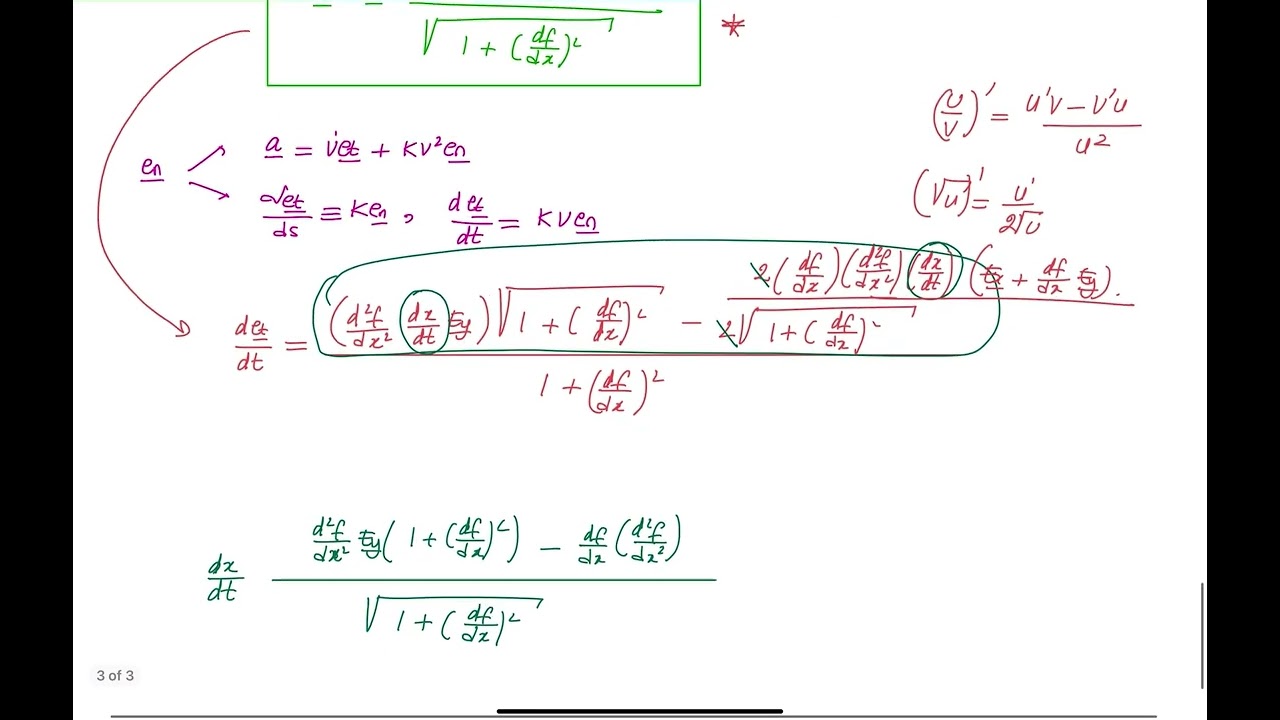 √(1 + (df/dx)²) *
(u/v)' = (u'v − v'u)/u²
en
a = v̇et + Kv²en
(√u)' = u'/(2√u)
det/ds ≡ Ken , det/dt = KVen
det/dt = ((d²f/dx² dx/dt Ey)√(1 + (df/dx)²) − 2(df/dx)(d²f/dx²)(dx/dt)(Ex + df/dx Ey)./(2√(1 + (df/dx)²)))/(1 + (df/dx)²)
dx/dt (d²f/dx² Ey(1 + (df/dx)²) − df/dx (d²f/dx²))/√(1 + (df/dx)²)
3 of 3